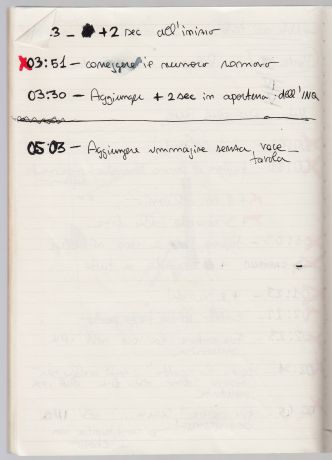 3 - +2 sec all'inizio
03:51 - correggere il numero romano
03:30 - Aggiungere +2 sec in apertura dell'INQ
05:03 - Aggiungere immagine senza voce
tavola